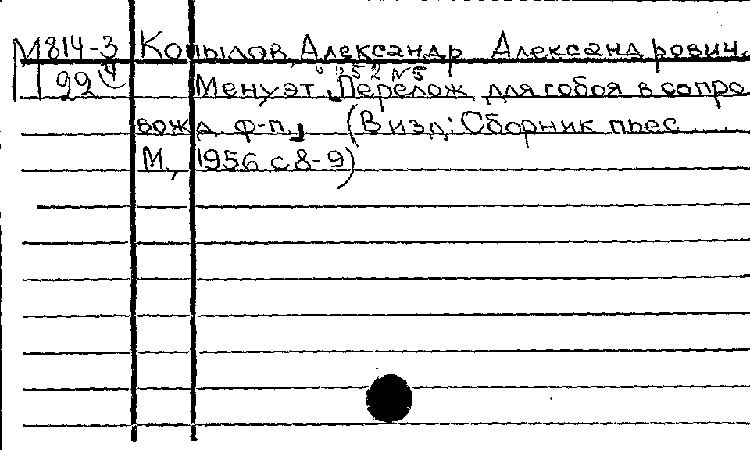 М814-3 Копылов, Александр Александрович.
99 Менуэт. Перелож для гобоя в сопро
вожд ф-п. (В изд: Сборник пьес ....
М., 1956 с 8-9)